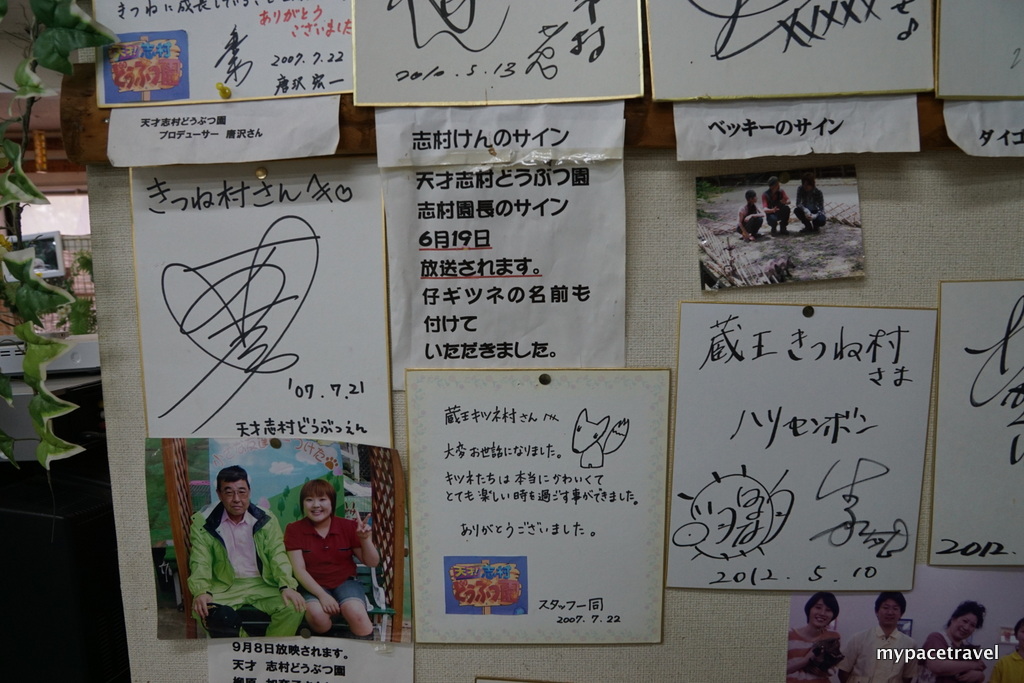 きつねに成長し
ありがとう
ございました
2007.7.22
唐沢宏一
天才!志村
どうぶつ園
天才志村どうぶつ園
プロデューサー 唐沢さん
2010.5.13
志村けんのサイン
天才志村どうぶつ園
志村園長のサイン
6月19日
放送されます。
仔ギツネの名前も
付けて
いただきました。
XXXX
ベッキーのサイン
ダイゴ
きつね村さん江
'07.7.21
天才志村どうぶつえん
9月8日放映されます。
天才 志村どうぶつ園
蔵王キツネ村さん江
大変お世話になりました。
キツネたちは本当にかわいくて
とても楽しい時を過ごす事ができました。
ありがとうございました。
天才!志村
どうぶつ園
スタッフ一同
2007.7.22
蔵王きつね村
さま
ハリセンボン
2012.5.10
2012.
mypacetravel